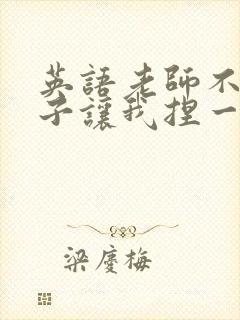 英語老師不
子讓我捏一
梁慶梅